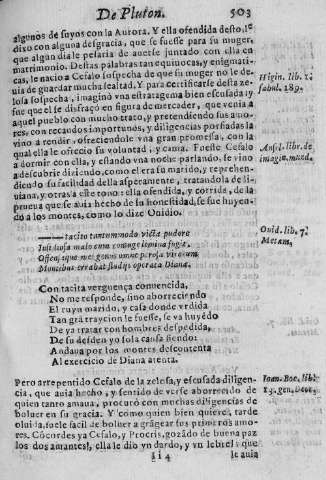 De Pluton. 503
algunos de suyos con la Aurora. Y ella ofendida desto, le
dixo con alguna desgracia, que se fuesse para su muger,
que algun dia le pesaria de auerse juntado con ella en
matrimonio. Destas palabras tan equiuocas, y enigmati-
cas, le nacio a Cefalo sospecha de que su muger no le de-
uia de guardar mucha lealtad. Y para certificarse desta ze-
losa sospecha, imaginò vna estratagema bien escusada, y
fue que el se disfraçò en figura de mercader, que venia a
aquel pueblo con mucho trato, y pretendiendo sus amo-
res, con recaudos importunos, y diligencias porfiadas la
vino a rendir, ofreciendole vna gran promessa, con la
qual ella le ofrecio su voluntad, y cama. Fuesse Cefalo
a dormir con ella, y estando vna noche parlando, se vino
a descubrir diziendo, como el era su marido, y reprehen-
diendo su facilidad della asperamente, tratandola de li-
uiana, y otras a este tono: ella ofendida, y corrida, de la
prueua que se auia hecho de la honestidad, se fue huyen-
do a los montes, como lo dize Ouidio.
Higin. lib. 1.
fabul. 189.
Ansel. lib. de
imagin. mund.
Ouid. lib. 7.
Metam.
tacito tantummodo victa pudore
Insidiosa malo cum coniuge limina fugit,
Offensaque mei genus omne perosa virorum
Montibus errabat studijs operata Dianæ.
Con tacita verguença conuencida,
No me responde, sino aborreciendo
El tuyo marido, y casa donde vrdida
Tan grã traycion le fuesse, se va huyẽdo
De ya tratar con hombres despedida,
De su desden yo sola causa siendo:
Andaua por los montes descontenta
Al exercicio de Diana atenta.
Pero arrepentido Cefalo de la zelosa, y escusada diligen-
cia, que auia hecho, y sentido de verse aborrecido de
quien tanto amaua, procurò con muchas diligencias de
boluer en su gracia. Y como quien bien quiere, tarde
oluida, fuele facil de boluer a grãgear sus primeros amo-
res. Cõcordes ya Cefalo, y Procris, gozãdo de buena paz
los dos amantes, ella le dio vn dardo, y vn lebrel: que
Ioan. Boc. lib.
13. gen. deor.
Ii 4 le auia